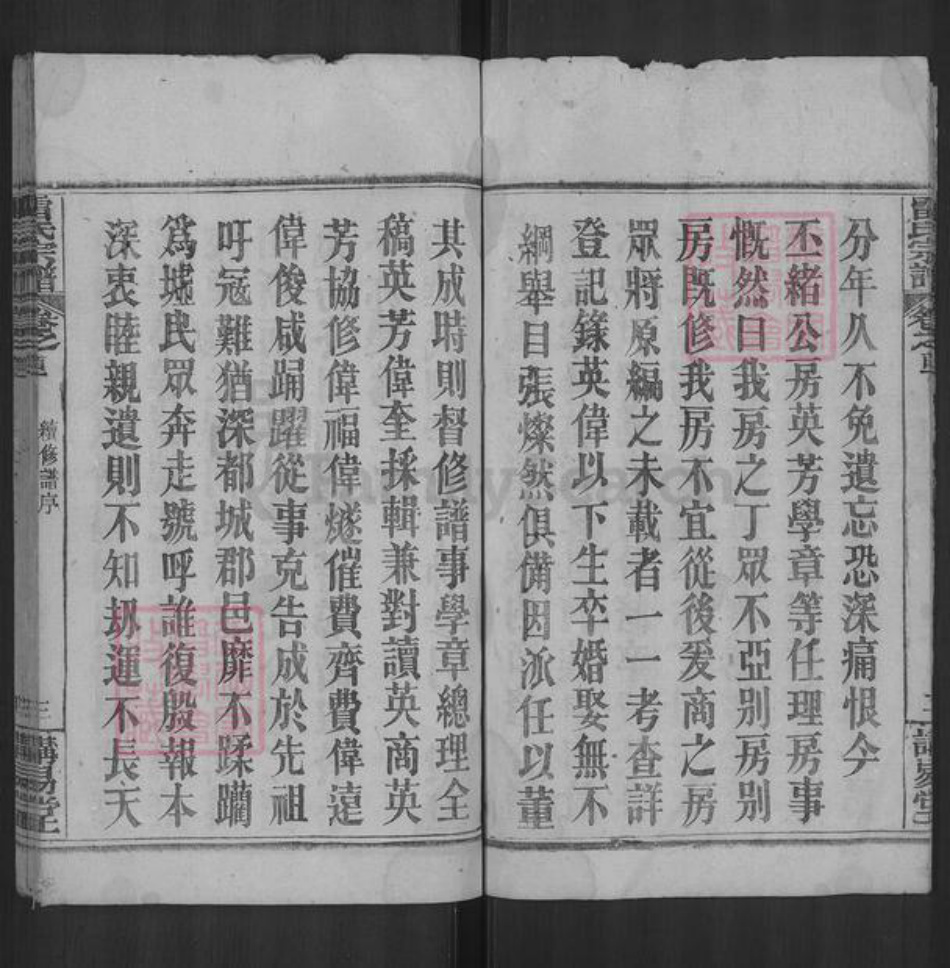 分年久不免遺忘恐深痛恨今
丕緒公房英芳學章等任理房事
慨然曰我房之丁眾不亞别房别
房既修我房不宜從後爰商之房
眾將原編之未載者一一考查詳
登記錄英偉以下生卒婚娶無不
綱舉目張燦然俱備因派任以董
其成時則督修譜事學章總理全
稿英芳偉奎採輯兼對讀英商英
芳協修偉福偉燧催費齊費偉遠
偉俊咸踊躍從事克告成於先祖
吁寇難猶深都城郡邑靡不蹂躪
為墟民眾奔走號呼誰復殷報本
深衷睦親遺則不知刼運不長天
氏宗譜
卷之
續修譜序
三
講易堂